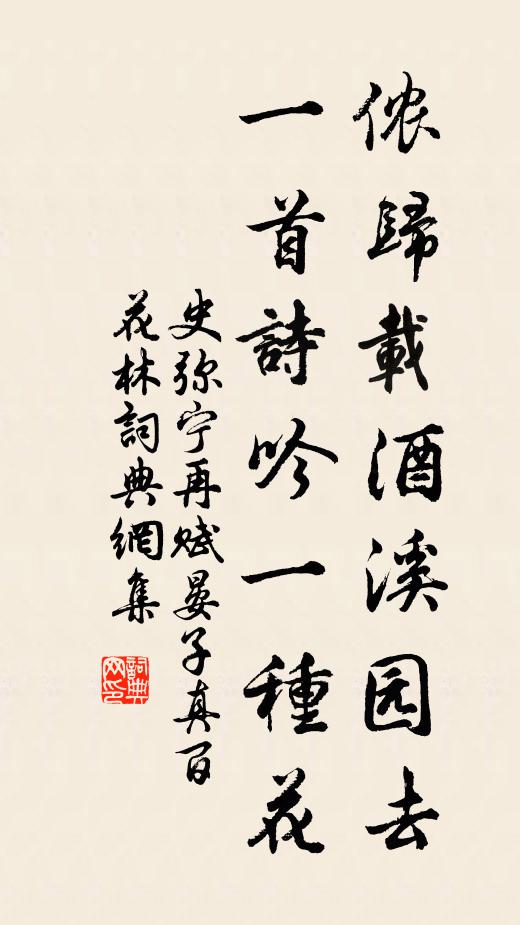 侬歸載酒溪园去
一首詩吟一種花
史弥宁再赋晏子真百
花林詞典網集
詞典网印